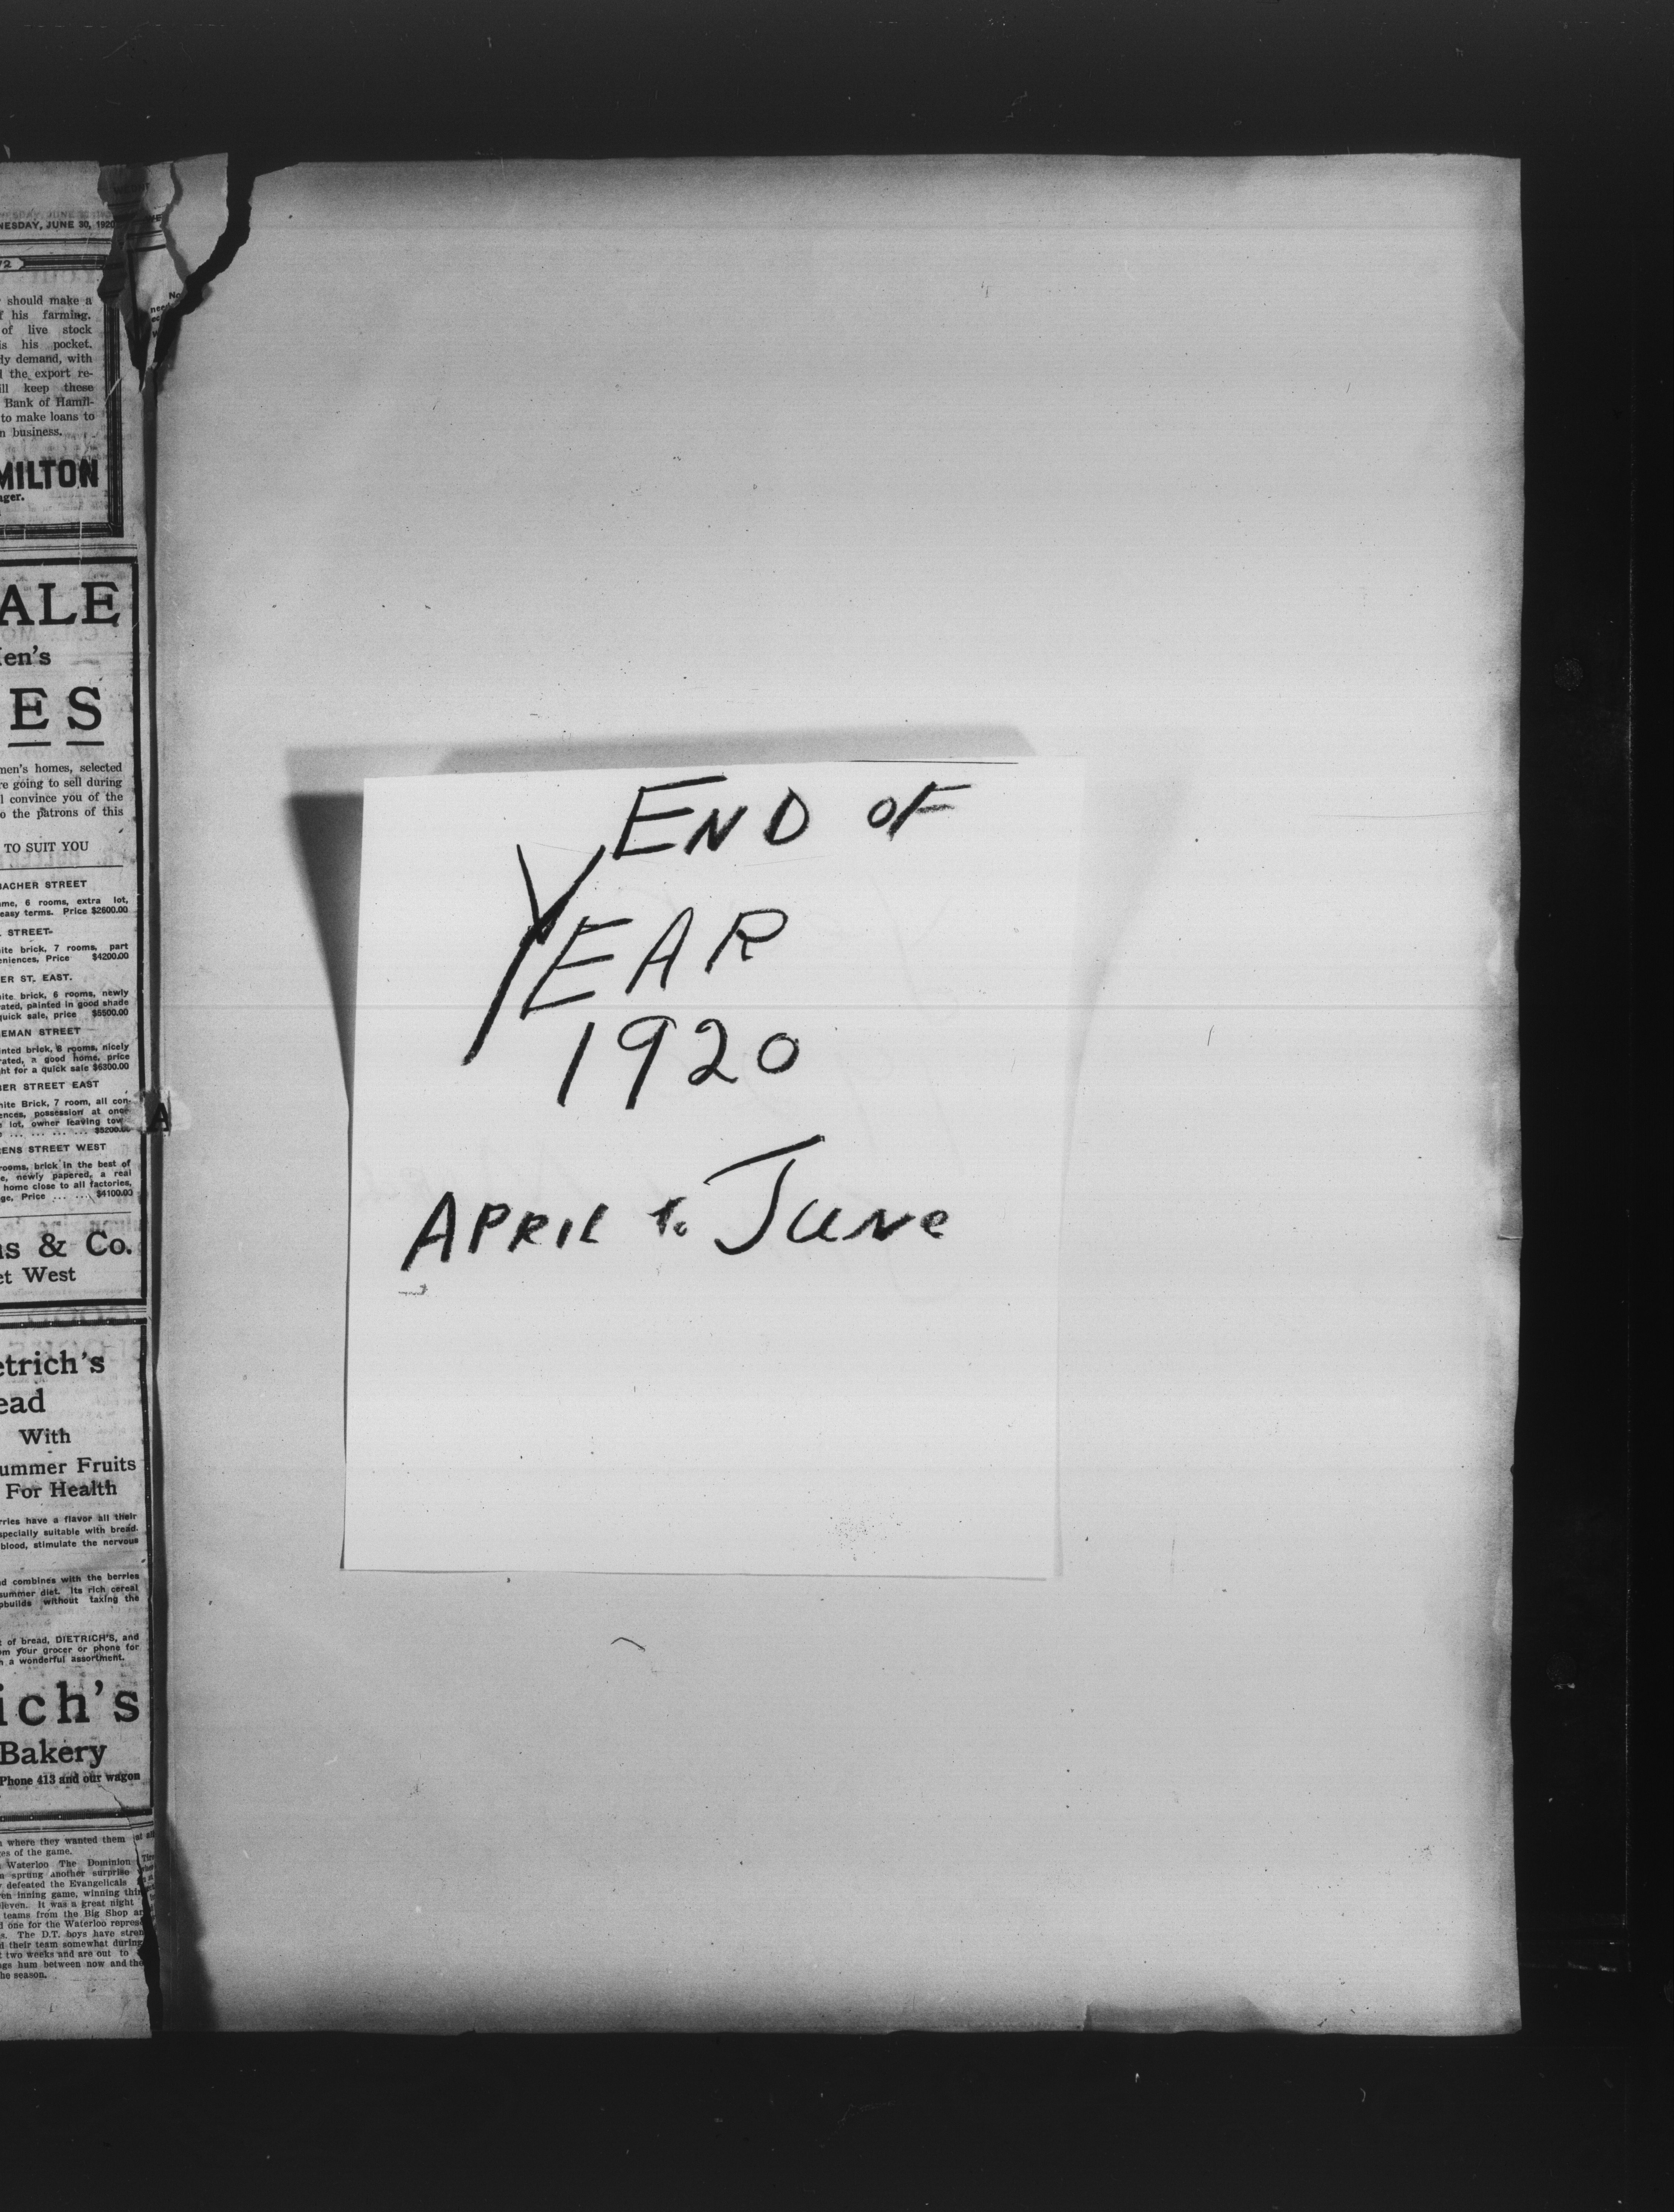 NESDAY, JUNE 30, 1920
should make a
his farming.
of live stock
is his pocket.
demand, with
the export re-
keep these
Bank of Hamil-
to make loans to
n business.
MILTON
ager.
ALE
en's
ES
men's homes, selected
re going to sell during
l convince you of the
o the patrons of this
TO SUIT YOU
BACHER STREET
ame, 6 rooms, extra lot,
easy terms. Price $2600.00
STREET-
ite brick, 7 rooms, part
eniences, Price $4200.00
ER ST. EAST.
ite brick, 6 rooms, newly
ated, painted in good shade
quick sale, price $5500.00
EMAN STREET
inted brick, 8 rooms, nicely
rated, a good home, price
ht for a quick sale $6300.00
BER STREET EAST
hite Brick, 7 room, all con-
ences, possession at once
lot, owner leaving tow
$5200.00
ENS STREET WEST
rooms, brick in the best of
e, newly papered, a real
home close to all factories,
ge, Price ... ... $4100.00
ns & Co.
et West
etrich's
ead
With
ummer Fruits
For Health
rries have a flavor all their
specially suitable with bread.
blood, stimulate the nervous
d combines with the berries
summer diet. Its rich cereal
pbuilds without taxing the
of bread, DIETRICH'S, and
om your grocer or phone for
a wonderful assortment.
ich's
Bakery
Phone 413 and our wagon
where they wanted them
es of the game.
Waterloo The Dominion
sprung another surprise
defeated the Evangelicals
en inning game, winning this
leven. It was a great night
teams from the Big Shop
d one for the Waterloo repres
s. The D.T. boys have stren
d their team somewhat during
t two weeks and are out to
ngs hum between now and the
he season.
END OF
YEAR
1920
APRIL to JUNE